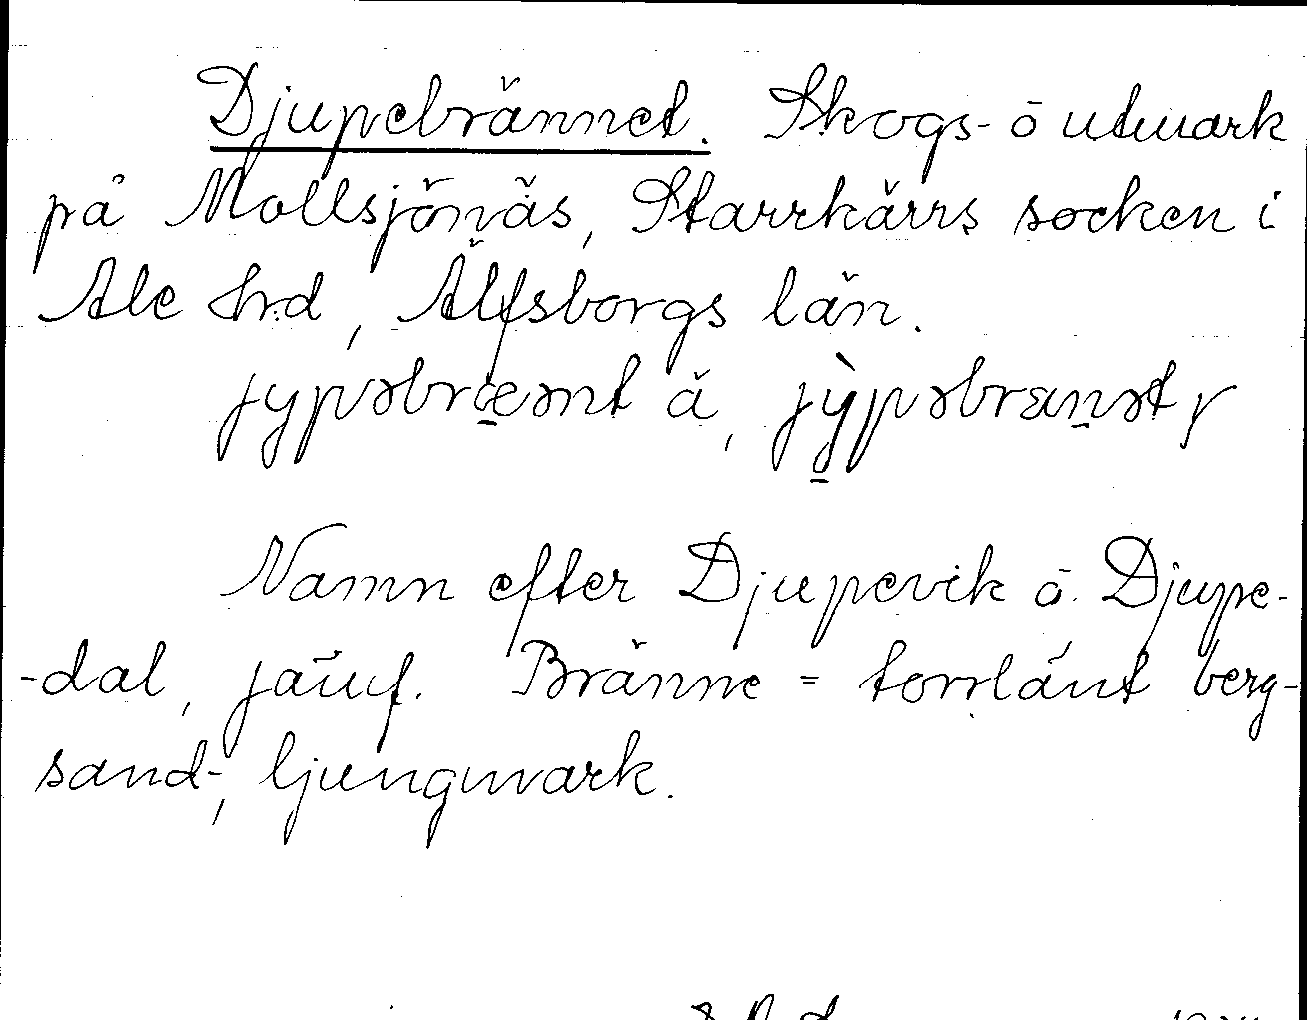 Djupebrännet. Skogs- ō utmark
på Mollsjönäs, Starrkärrs socken i
Ale hrd, Älfsborgs län.
Namn efter Djupevik ō. Djupe-
-dal, jämf. Bränne = torrlänt berg-
sand-, ljungmark.